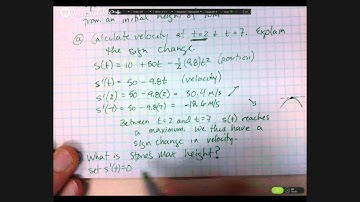 from an initial height of 10m
(a) Calculate velocity at t=2 & t=7. Explain
the sign change.
s(t) = 10 + 50t - ½(9.8)t² (position)
s'(t) = 50 - 9.8t (velocity)
s'(2) = 50 - 9.8(2) = 30.4 m/s
s'(7) = 50 - 9.8(7) = -18.6 m/s
Between t=2 and t=7 s(t) reaches
a maximum. We thus have a
sign change in velocity.
What is stone's max height?
set s'(t)=0